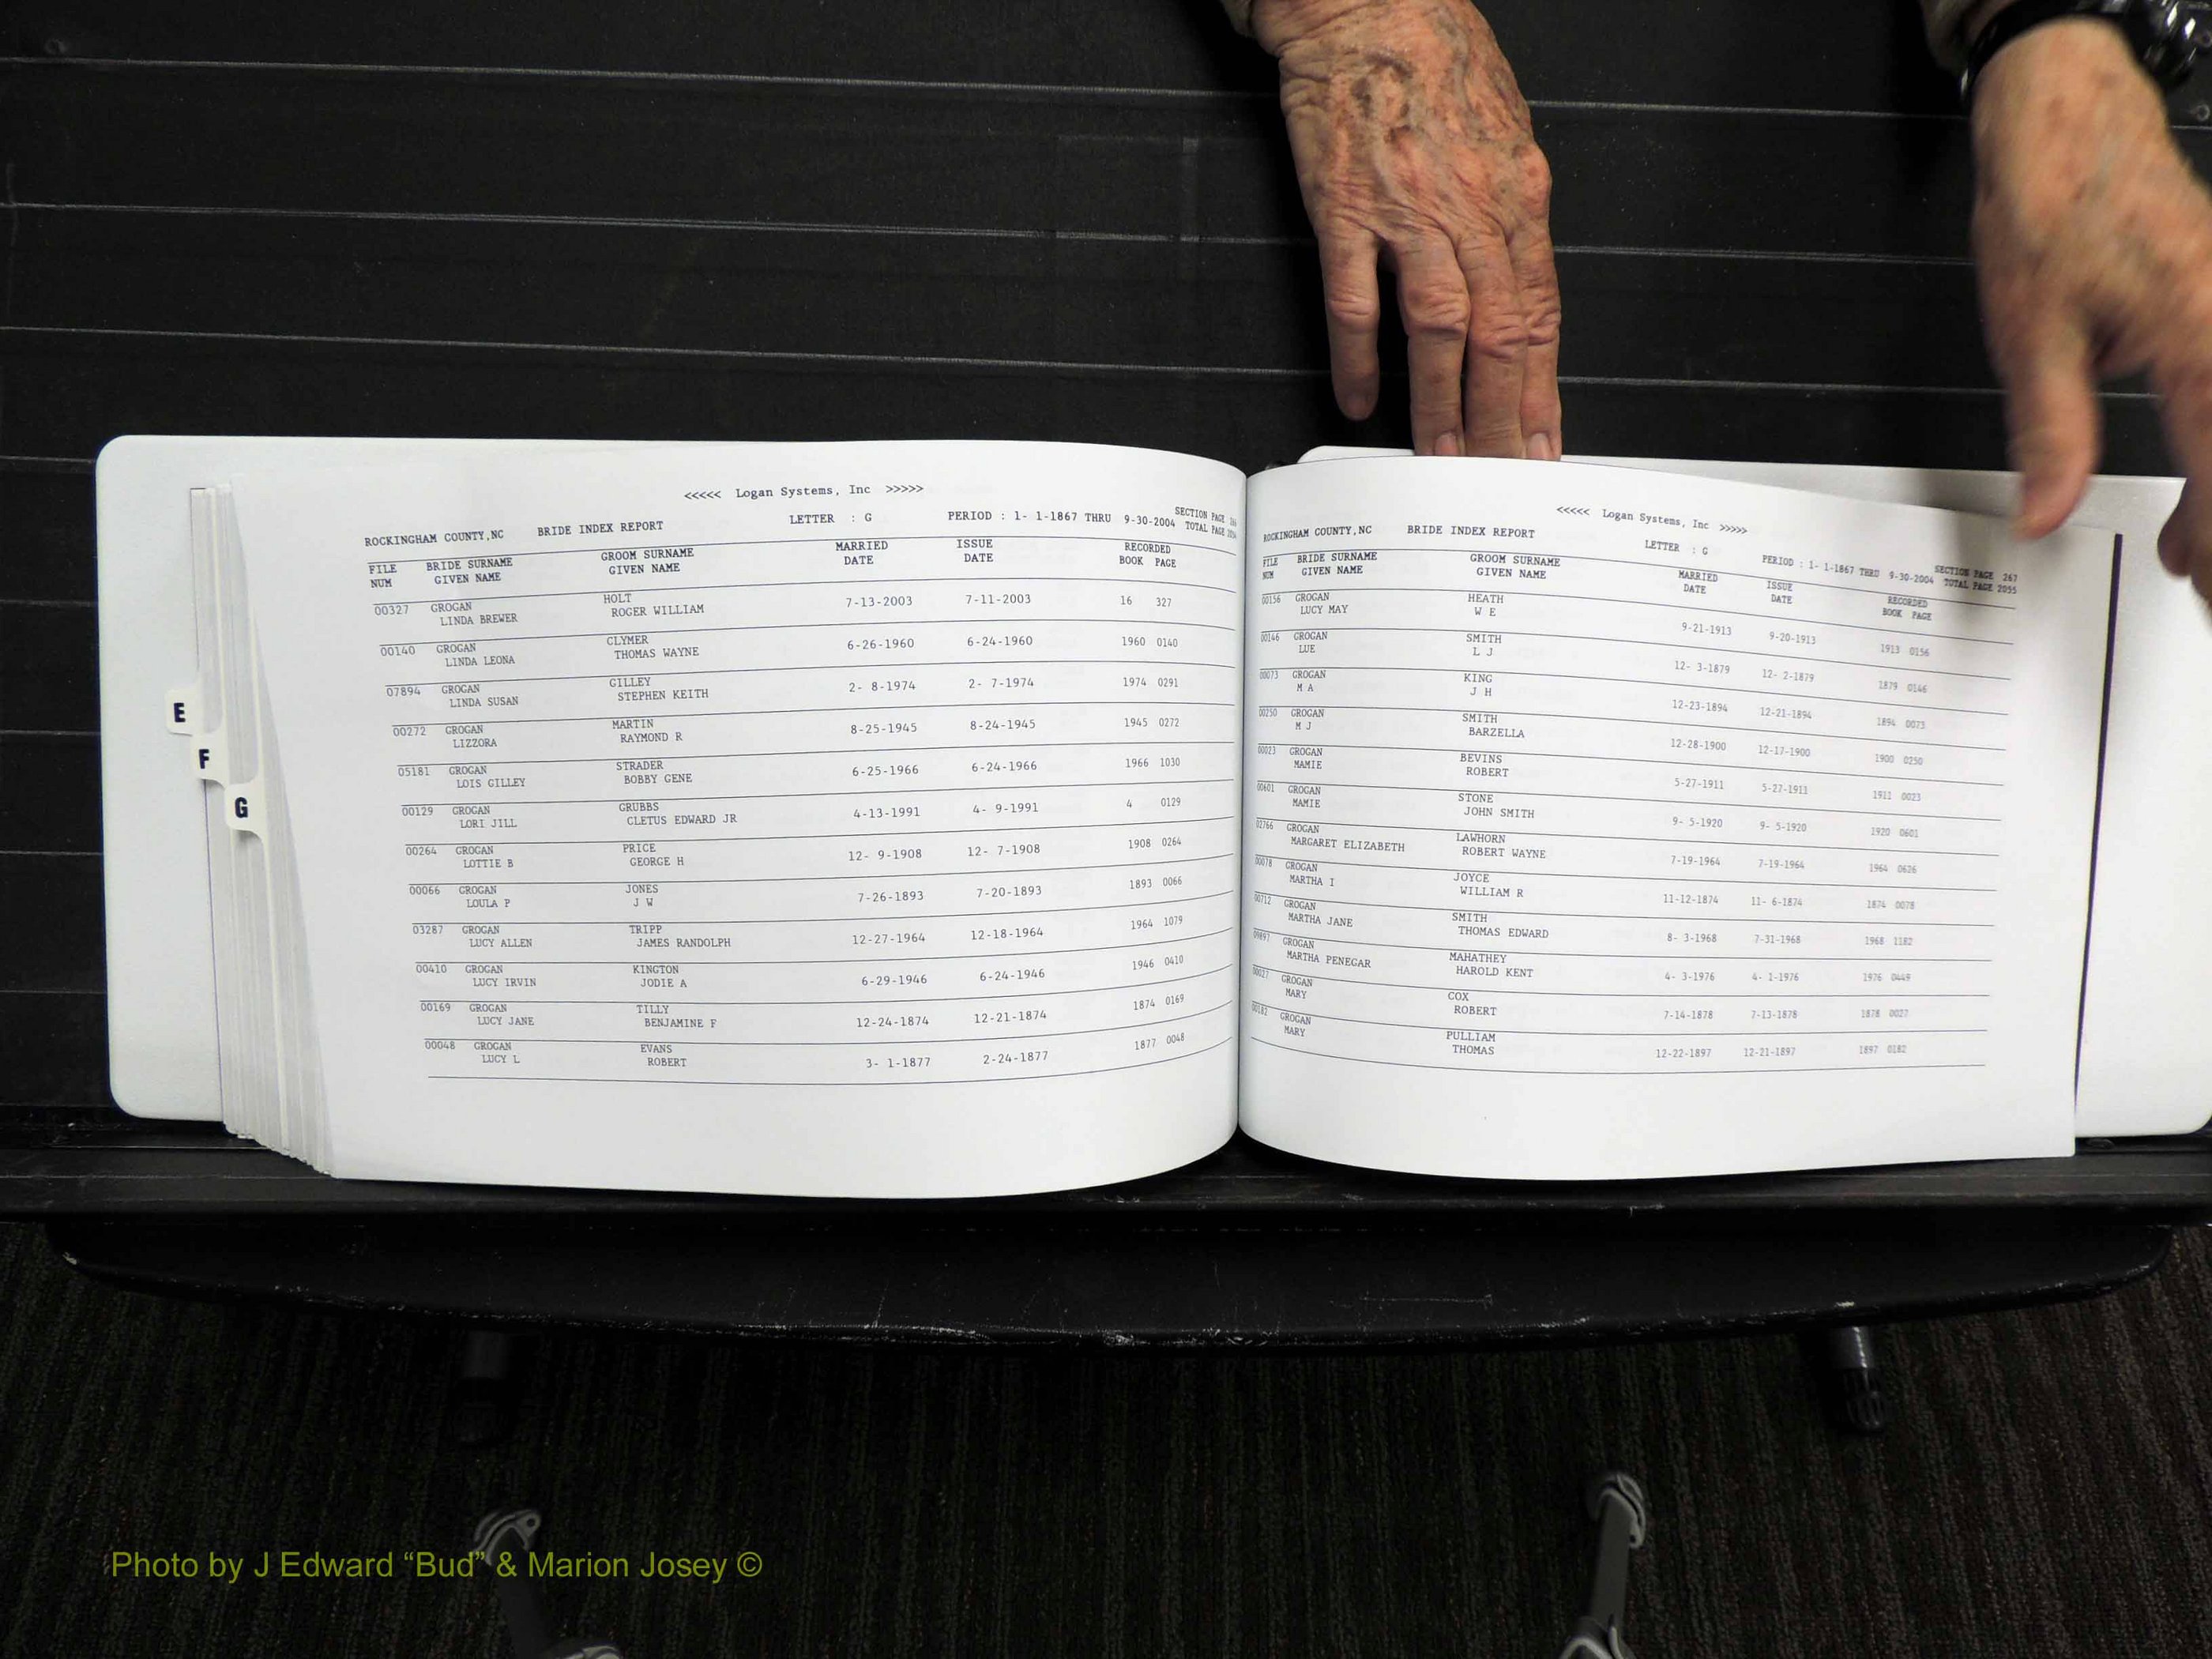 <<<<< Logan Systems, Inc >>>>>
ROCKINGHAM COUNTY,NC BRIDE INDEX REPORT LETTER : G PERIOD : 1- 1-1867 THRU 9-30-2004 SECTION PAGE
TOTAL PAGE
FILE BRIDE SURNAME GROOM SURNAME MARRIED ISSUE RECORDED
NUM GIVEN NAME GIVEN NAME DATE DATE BOOK PAGE
00327 GROGAN HOLT 7-13-2003 7-11-2003 16 327
LINDA BREWER ROGER WILLIAM
00140 GROGAN CLYMER 6-26-1960 6-24-1960 1960 0140
LINDA LEONA THOMAS WAYNE
07894 GROGAN GILLEY 2- 8-1974 2- 7-1974 1974 0291
LINDA SUSAN STEPHEN KEITH
00272 GROGAN MARTIN 8-25-1945 8-24-1945 1945 0272
LIZZORA RAYMOND R
05181 GROGAN STRADER 6-25-1966 6-24-1966 1966 1030
LOIS GILLEY BOBBY GENE
00129 GROGAN GRUBBS 4-13-1991 4- 9-1991 4 0129
LORI JILL CLETUS EDWARD JR
00264 GROGAN PRICE 12- 9-1908 12- 7-1908 1908 0264
LOTTIE B GEORGE H
00066 GROGAN JONES 7-26-1893 7-20-1893 1893 0066
LOULA P J W
03287 GROGAN TRIPP 12-27-1964 12-18-1964 1964 1079
LUCY ALLEN JAMES RANDOLPH
00410 GROGAN KINGTON 6-29-1946 6-24-1946 1946 0410
LUCY IRVIN JODIE A
00169 GROGAN TILLY 12-24-1874 12-21-1874 1874 0169
LUCY JANE BENJAMINE F
00048 GROGAN EVANS 3- 1-1877 2-24-1877 1877 0048
LUCY L ROBERT
E
F
G
<<<<< Logan Systems, Inc >>>>>
ROCKINGHAM COUNTY,NC BRIDE INDEX REPORT LETTER : G PERIOD : 1- 1-1867 THRU 9-30-2004 SECTION PAGE 267
TOTAL PAGE 2055
FILE BRIDE SURNAME GROOM SURNAME MARRIED ISSUE RECORDED
NUM GIVEN NAME GIVEN NAME DATE DATE BOOK PAGE
00156 GROGAN HEATH 9-21-1913 9-20-1913 1913 0156
LUCY MAY W E
00146 GROGAN SMITH 12- 3-1879 12- 2-1879 1879 0146
LUE L J
00073 GROGAN KING 12-23-1894 12-21-1894 1894 0073
M A J H
00250 GROGAN SMITH 12-28-1900 12-17-1900 1900 0250
M J BARZELLA
00023 GROGAN BEVINS 5-27-1911 5-27-1911 1911 0023
MAMIE ROBERT
00601 GROGAN STONE 9- 5-1920 9- 5-1920 1920 0601
MAMIE JOHN SMITH
02766 GROGAN LAWHORN 7-19-1964 7-19-1964 1964 0626
MARGARET ELIZABETH ROBERT WAYNE
00078 GROGAN JOYCE 11-12-1874 11- 6-1874 1874 0078
MARTHA I WILLIAM R
00712 GROGAN SMITH 8- 3-1968 7-31-1968 1968 1182
MARTHA JANE THOMAS EDWARD
09897 GROGAN MAHATHEY 4- 3-1976 4- 1-1976 1976 0449
MARTHA PENEGAR HAROLD KENT
00027 GROGAN COX 7-14-1878 7-13-1878 1878 0027
MARY ROBERT
00182 GROGAN PULLIAM 12-22-1897 12-21-1897 1897 0182
MARY THOMAS
Photo by J Edward “Bud” & Marion Josey ©